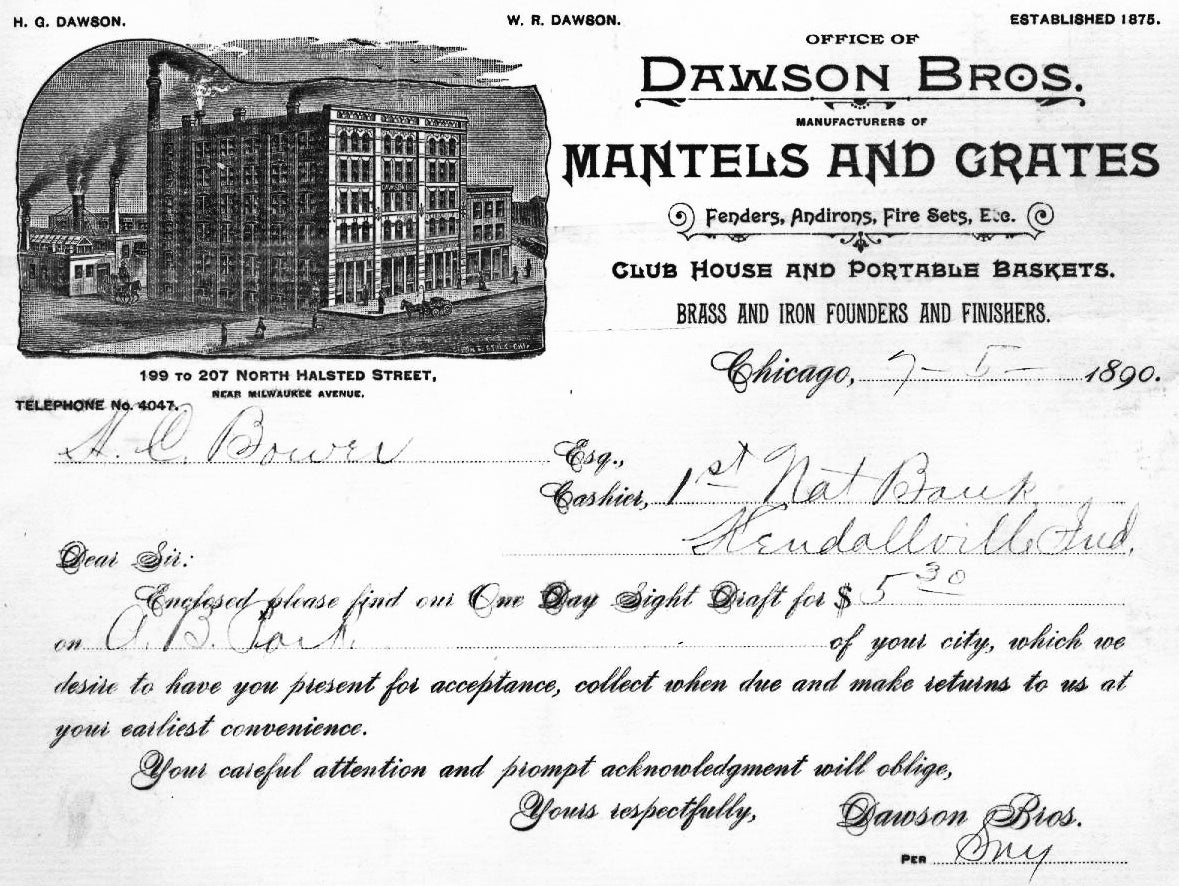 H. G. DAWSON. W. R. DAWSON. ESTABLISHED 1875.
OFFICE OF
DAWSON BROS.
MANUFACTURERS OF
MANTELS AND GRATES
Fenders, Andirons, Fire Sets, Etc.
CLUB HOUSE AND PORTABLE BASKETS.
BRASS AND IRON FOUNDERS AND FINISHERS.
DAWSON BROS.
199 TO 207 NORTH HALSTED STREET,
NEAR MILWAUKEE AVENUE.
TELEPHONE No. 4047.
Chicago, 7-5- 1890.
H. C. Bower Esq.,
Cashier, 1st Nat Bank
Kendallville, Ind.
Dear Sir:
Enclosed please find our One Day Sight Draft for $ 5 30
on A. B. Park of your city, which we
desire to have you present for acceptance, collect when due and make returns to us at
your earliest convenience.
Your careful attention and prompt acknowledgment will oblige,
Yours respectfully, Dawson Bros.
PER